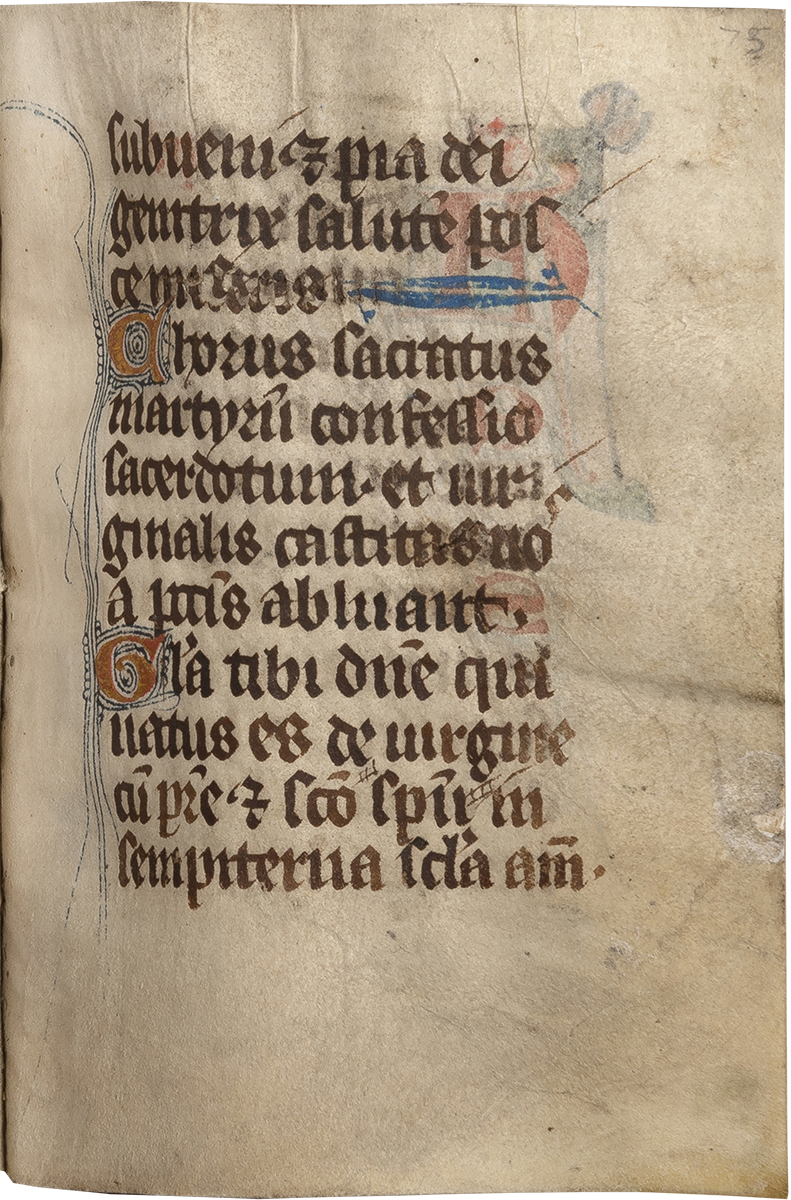 75
subueni ⁊ pia dei
genitrix salutē pos
cem᷒
Chorus sacratus
martyrū confessio
sacerdotum. et uir
ginalis castitas nos
a pccīs abluant.
Glʼa tibi dn̄e qui
natus es de uirgine
cū pr̄e ⁊ sc̄o spū in
sempiterna scl̄a am̄.